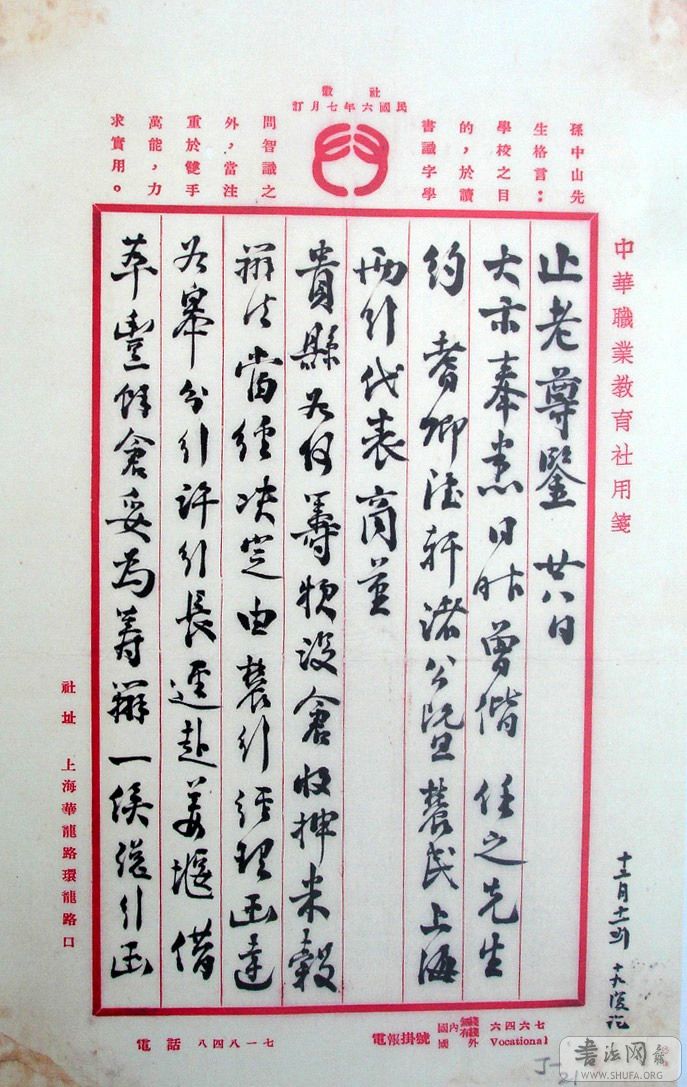 社徽
民國六年七月訂
孫中山先
生格言：
學校之目
的，於讀
書識字學
問智識之
外，當注
重於雙手
萬能，力
求實用。
中華職業教育社用箋
止老尊鑒 廿八日
大示奉悉日昨曾偕 任之先生
約 耆卿 軒諸公暨農民上海
兩行代表商量
貴縣如何籌 設倉收押米穀
辦法當經決定由農行經理函達
如皋分行許行長逕赴姜堰借
萃豐餘倉妥為籌辦一俟 行函
十二月十一到 十九復訖
社址 上海華龍路環龍路口
電話 八四八一七
電報掛號 國內 國外 六四六七 Vocational
J-
書法网
WWW.SHUFA.ORG